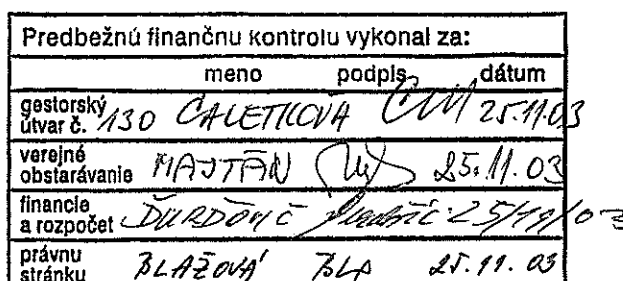 Predbežnú finančnú kontrolu vykonal za:
meno podpis dátum
gestorský útvar č. 130 CALETKOVÁ 25.11.03
verejné obstarávanie MAJTÁN 25.11.03
financie a rozpočet ĎURĎOVIČ 25/11/03
právnu stránku BLAŽOVÁ BLA 25.11.03